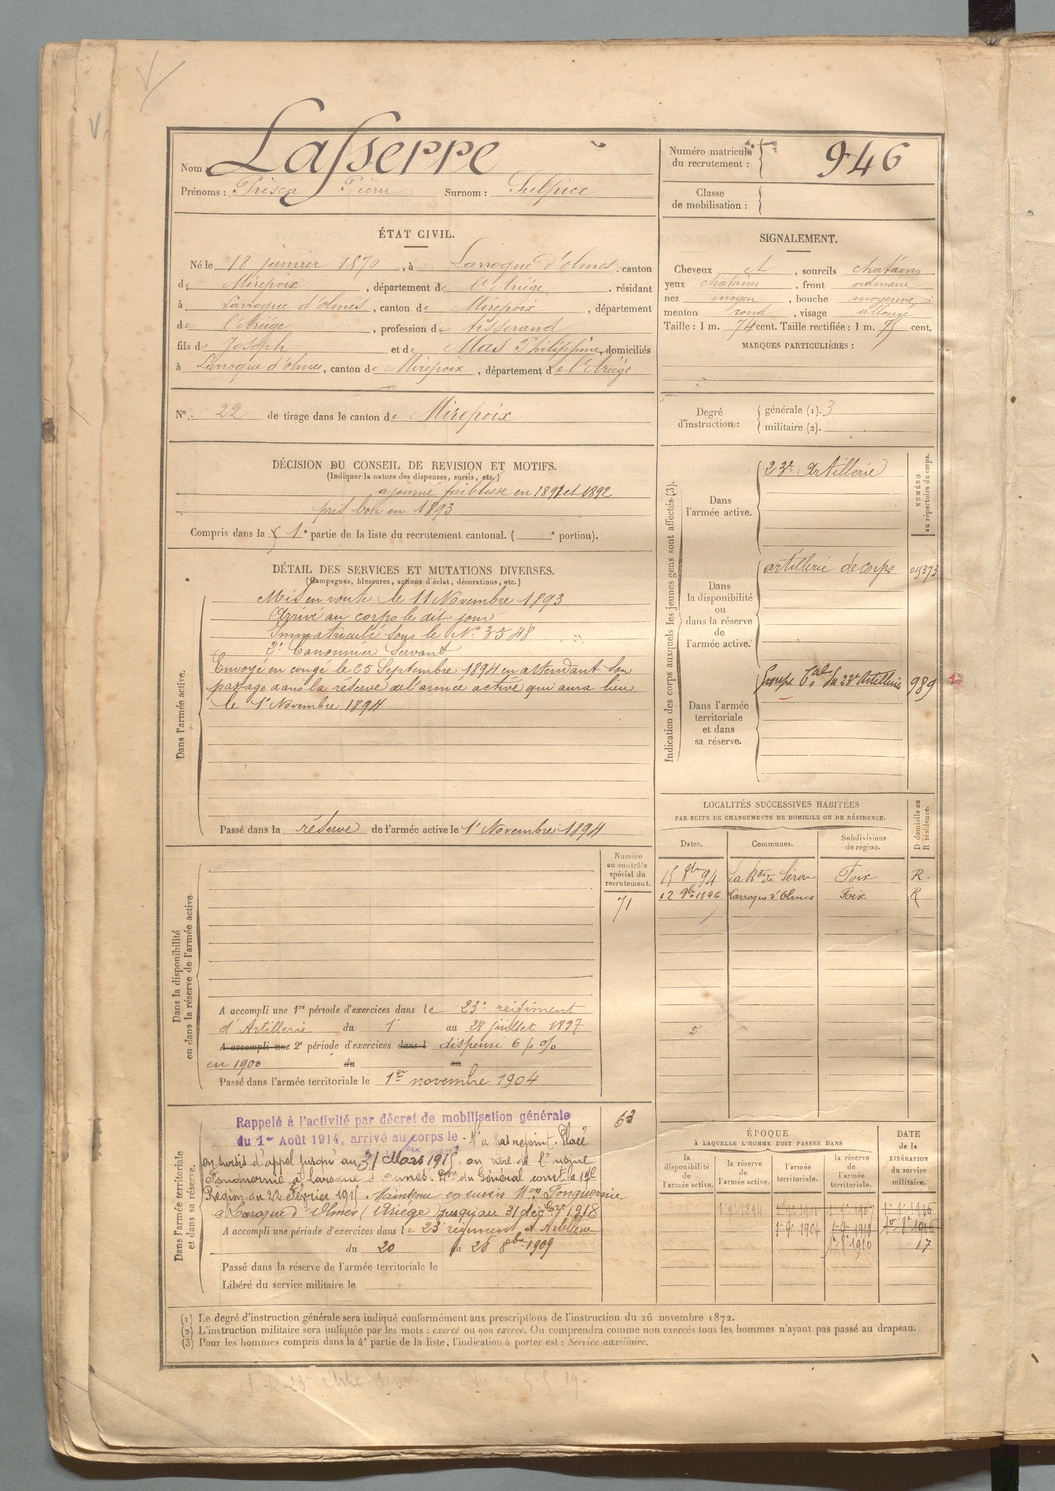 Nom Lasserre
Prénoms : Prisca Pierre Surnom : Sulpice
Numéro matricule du recrutement : 946
Classe de mobilisation :
ÉTAT CIVIL.
Né le 18 janvier 1870, à Larroque d'olmes, canton
de Mirepoix, département de l'Ariège, résidant
à Larroque d'olmes, canton de Mirepoix, département
de l'Ariège, profession de tisserand
fils de Joseph et de Mas Philippine, domiciliés
à Larroque d'olmes, canton de Mirepoix, département de l'Ariège
SIGNALEMENT.
Cheveux et, sourcils chatains
yeux chatains, front ordinaire
nez moyen, bouche moyenne
menton rond, visage allongé
Taille : 1 m. 74 cent. Taille rectifiée : 1 m. cent.
MARQUES PARTICULIÈRES :
N° 22 de tirage dans le canton de Mirepoix
Degré d'instruction : générale (1). 3
militaire (2).
DÉCISION DU CONSEIL DE REVISION ET MOTIFS.
(Indiquer la nature des dispenses, sursis, etc.)
ajourné faiblesse en 1891 et 1892
pris bon en 1893
Compris dans la 1e partie de la liste du recrutement cantonal. ( e portion).
DÉTAIL DES SERVICES ET MUTATIONS DIVERSES.
(Campagnes, blessures, actions d'éclat, décorations, etc.)
Dans l'armée active.
Mis en route le 11 Novembre 1893
Arrivé au corps le dit jour
Immatriculé sous le N° 3548
2e Canonnier Servant
Envoyé en congé le 25 Septembre 1894 en attendant son
passage dans la réserve de l'armée active qui aura lieu
le 1er Novembre 1894
Passé dans la réserve de l'armée active le 1er Novembre 1894
Indication des corps auxquels les jeunes gens sont affectés (3).
NUMÉRO au répertoire du corps.
Dans l'armée active.
23e Artillerie
Dans la disponibilité ou dans la réserve de l'armée active.
artillerie de corps
Dans l'armée territoriale et dans sa réserve.
Groupe du 23e Artillerie 989
LOCALITÉS SUCCESSIVES HABITÉES
PAR SUITE DE CHANGEMENTS DE DOMICILE OU DE RÉSIDENCE.
Dates. Communes. Subdivisions de région. D domicile ou R résidence.
15 94 La de Sérou Foix R.
12 1896 Larroque d'Olmes Foix R
Numéro au contrôle spécial du recrutement.
71
Dans la disponibilité ou dans la réserve de l'armée active
A accompli une 1re période d'exercices dans le 23e régiment
d'Artillerie du 1er au 28 juillet 1897
A accompli une 2e période d'exercices dans l dispensé 6 p %
en 1900 du au
Passé dans l'armée territoriale le 1er novembre 1904
63
Dans l'armée territoriale et dans sa réserve.
Rappelé à l'activité par décret de mobilisation générale
du 1er Août 1914, arrivé au corps le N'a pas rejoint. Placé
en sursis d'appel jusqu'au 31 Mars 1915 au titre de l'usine
à Laroque d'olmes. Don du Général comt la 17e
Région du 22 février 1915. Maintenu en sursis
à Laroque d'Olmes (Ariège) jusqu'au 31 déc 1918
A accompli une période d'exercices dans le 23e régiment d'Artillerie
du 20 au 28 8bre 1909
Passé dans la réserve de l'armée territoriale le
Libéré du service militaire le
ÉPOQUE
À LAQUELLE L'HOMME DOIT PASSER DANS
la disponibilité de l'armée active. la réserve de l'armée active. l'armée territoriale. la réserve de l'armée territoriale.
DATE de la LIBÉRATION du service militaire.
(1) Le degré d'instruction générale sera indiqué conformément aux prescriptions de l'instruction du 26 novembre 1872.
(2) L'instruction militaire sera indiquée par les mots : exercé ou non exercé. On comprendra comme non exercés tous les hommes n'ayant pas passé au drapeau.
(3) Pour les hommes compris dans la 4e partie de la liste, l'indication à porter est : Service auxiliaire.